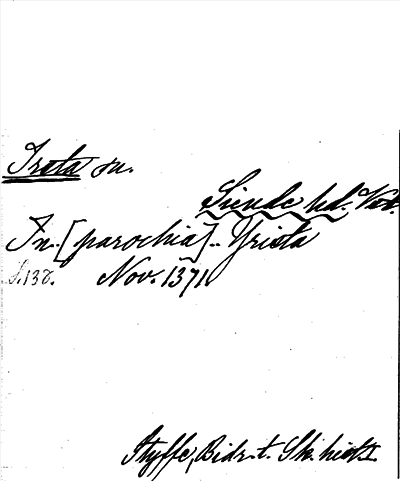 Irsta sn.
Siende hd. Vstm.
In [parochia].. Yrista
S. 138. Nov. 1371
Styffe, Bidr. t. Sk. hist. I.